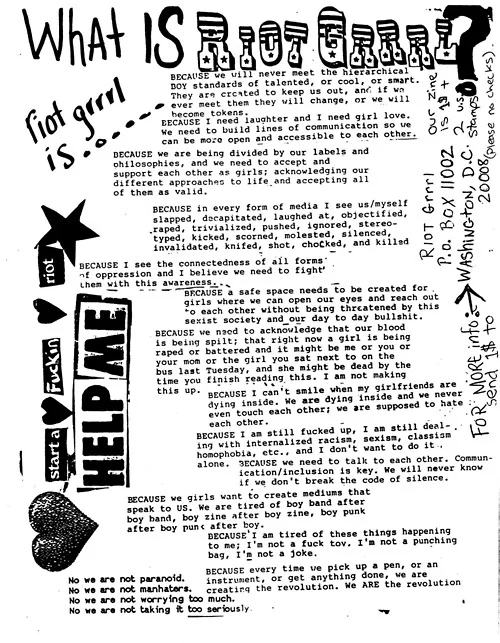 WHAT IS RIOT GRRRL?
riot grrrl
is........
BECAUSE we will never meet the hierarchical
BOY standards of talented, or cool, or smart.
They are created to keep us out, and if we
ever meet them they will change, or we will
become tokens.
BECAUSE I need laughter and I need girl love.
We need to build lines of communication so we
can be more open and accessible to each other.
BECAUSE we are being divided by our labels and
philosophies, and we need to accept and
support each other as girls; acknowledging our
different approaches to life and accepting all
of them as valid.
BECAUSE in every form of media I see us/myself
slapped, decapitated, laughed at, objectified,
raped, trivialized, pushed, ignored, stereo-
typed, kicked, scorned, molested, silenced,
invalidated, knifed, shot, chocked, and killed
BECAUSE I see the connectedness of all forms
of oppression and I believe we need to fight
them with this awareness.
BECAUSE a safe space needs to be created for
girls where we can open our eyes and reach out
to each other without being threatened by this
sexist society and our day to day bullshit.
BECAUSE we need to acknowledge that our blood
is being spilt; that right now a girl is being
raped or battered and it might be me or you or
your mom or the girl you sat next to on the
bus last Tuesday, and she might be dead by the
time you finish reading this. I am not making
this up.
BECAUSE I can't smile when my girlfriends are
dying inside. We are dying inside and we never
even touch each other; we are supposed to hate
each other.
BECAUSE I am still fucked up, I am still deal-
ing with internalized racism, sexism, classism
homophobia, etc., and I don't want to do it
alone.
BECAUSE we need to talk to each other. Commun-
ication/inclusion is key. We will never know
if we don't break the code of silence.
BECAUSE we girls want to create mediums that
speak to US. We are tired of boy band after
boy band, boy zine after boy zine, boy punk
after boy punk after boy.
BECAUSE I am tired of these things happening
to me; I'm not a fuck toy. I'm not a punching
bag, I'm not a joke.
BECAUSE every time we pick up a pen, or an
instrument, or get anything done, we are
creating the revolution. We ARE the revolution
No we are not paranoid.
No we are not manhaters.
No we are not worrying too much.
No we are not taking it too seriously.
start a
Fuckin
riot
HELP ME
FOR MORE info:
send 1$ to
RIOT Grrrl
P.O. BOX 11002
WASHINGTON, D.C.
20008
our zine
is 1$ +
2 us
stamps
(please no checks)